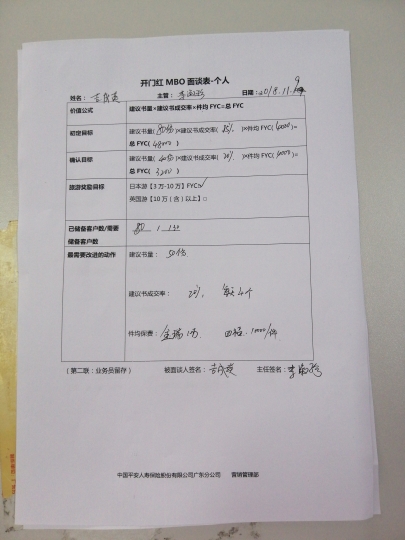 开门红 MBO 面谈表-个人
姓名： 主管： 日期：2018.11.9
价值公式 建议书量×建议书成交率×件均 FYC=总 FYC
初定目标 建议书量( 80份 )×建议书成交率( 15% )×件均 FYC( 4000 )=
总 FYC( 48000 )
确认目标 建议书量( 40份 )×建议书成交率( 20% )×件均 FYC( 4000 )=
总 FYC( 32000 )
旅游奖励目标 日本游【3 万-10 万】FYC☑
英国游【10 万（含）以上】□
已储备客户数/需要 80 /
储备客户数
最需要改进的动作 建议书量： 50份
建议书成交率： 20% 每天4个
件均保费： 金瑞 1万 10000/件
（第二联：业务员留存） 被面谈人签名： 主任签名：
中国平安人寿保险股份有限公司广东分公司 营销管理部